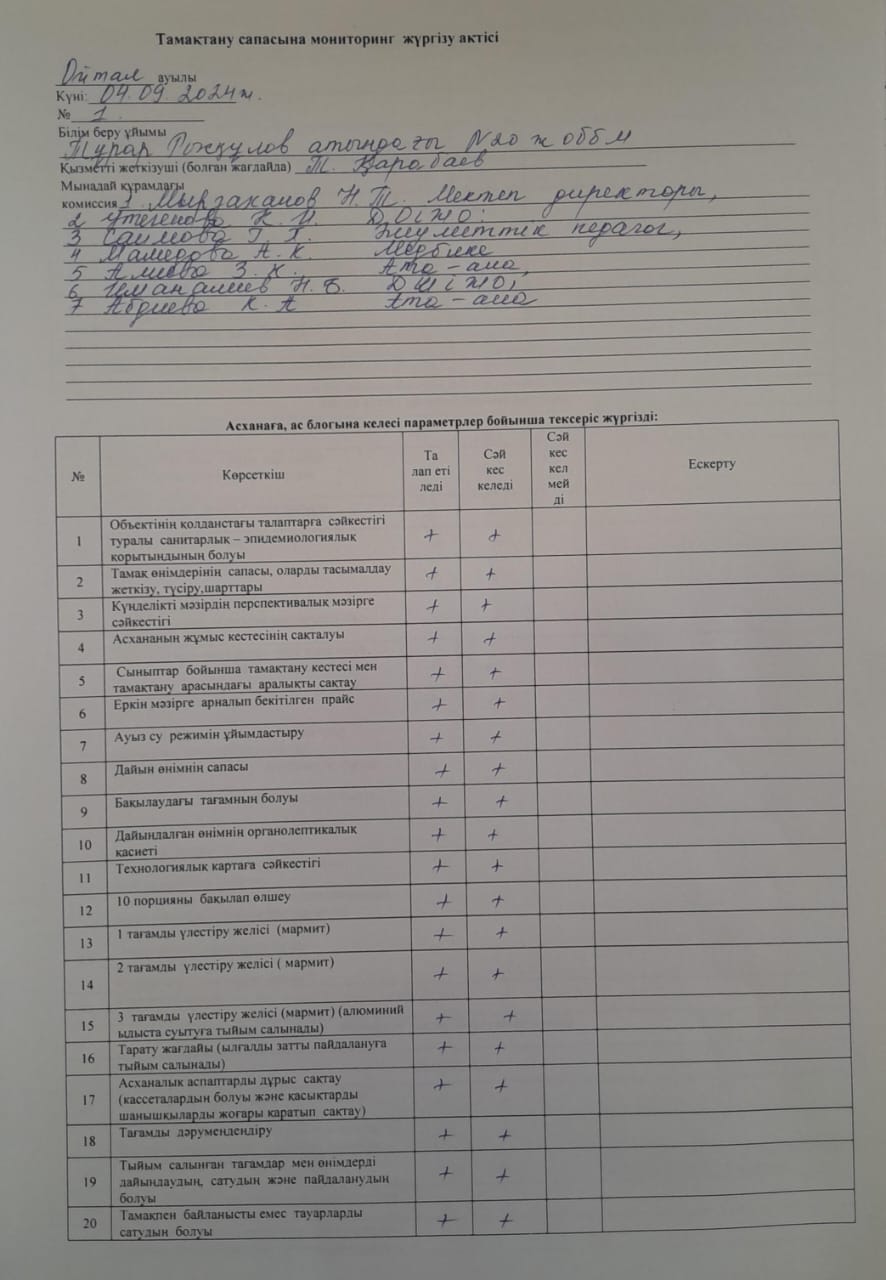 Тамақтану сапасына мониторинг жүргізу актісі
Ойтал ауылы
Күні: 04.09 2024ж.
№ 1
Білім беру ұйымы
Тұрар Рысқұлов атындағы N20 ж ОББМ
Қызметті жеткізуші (болған жағдайда) Т. Қарабаев
Мынадай құрамдағы
комиссия 1. Мырзаханов Н. Т. Мектеп директоры,
2 Утегенова К. И. ДОІЖО.
3 Саимова Г. Х. Әлуметтік педагог,
4 Мамедова А. К. Медбике
5 Алиева З. К. Ата-ана,
6 Иманалиев Н. Б. ДШІЖО,
7 Абдиева К. А Ата-ана
Асханаға, ас блогына келесі параметрлер бойынша тексеріс жүргізді:
№ Көрсеткіш Та лап еті леді Сәй кес келеді Сәй кес кел мей ді Ескерту
1 Объектінің қолданстағы талаптарға сәйкестігі
туралы санитарлық – эпидемиологиялық + +
қорытындының болуы
2 Тамақ өнімдерінің сапасы, оларды тасымалдау + +
жеткізу, түсіру,шарттары
3 Күнделікті мәзірдің перспективалық мәзірге + +
сәйкестігі
4 Асхананың жұмыс кестесінің сақталуы + +
5 Сыныптар бойынша тамақтану кестесі мен + +
тамақтану арасындағы аралықты сақтау
6 Еркін мәзірге арналып бекітілген прайс + +
7 Ауыз су режимін ұйымдастыру + +
8 Дайын өнімнің сапасы + +
9 Бақылаудағы тағамның болуы + +
10 Дайындалған өнімнің органолептикалық + +
қасиеті
11 Технологиялық картаға сәйкестігі + +
12 10 порцияны бақылап өлшеу + +
13 1 тағамды үлестіру желісі (мармит) + +
14 2 тағамды үлестіру желісі ( мармит) + +
15 3 тағамды үлестіру желісі (мармит) (алюминий + +
ыдыста суытуға тыйым салынады)
16 Тарату жағдайы (ылғалды затты пайдалануға + +
тыйым салынады)
17 Асханалық аспаптарды дұрыс сақтау + +
(кассеталардың болуы және қасықтарды
шанышқыларды жоғары қаратып сақтау)
18 Тағамды дәрумендендіру + +
19 Тыйым салынған тағамдар мен өнімдерді + +
дайындаудың, сатудың және пайдаланудың
болуы
20 Тамақпен байланысты емес тауарларды + +
сатудың болуы